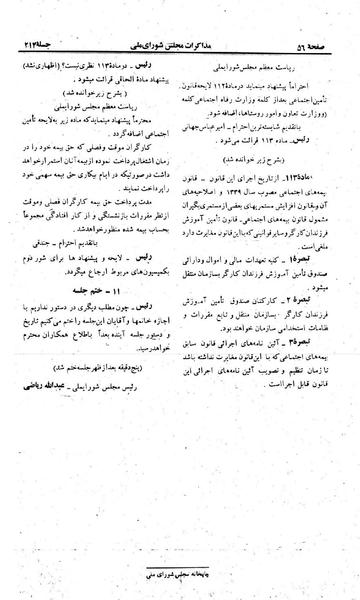 صفحهٔ ۵۶
مذاکرات مجلس شورای ملی
جلسهٔ ۲۱۲
ریاست معظم مجلس شورایملی
احتراماً پیشنهاد مینماید در مادهٔ ۱۱۲ لایحه قانون
تأمین اجتماعی بعداز کلمه وزارت رفاه اجتماعی کلمه
(ووزارت تعاون وامور روستاها) اضافه شود.
باتقدیم شایسته‌ترین احترام - امیرعباس جهانی
رئیس - ماده ۱۱۳ قرائت میشود.
(بشرح زیر خوانده شد)
ماده ۱۱۳ - از تاریخ اجرای این قانون - قانون
بیمه‌های اجتماعی سال ۱۳۳۹ و اصلاحیه‌های
آن وقانون افزایش مستمریهای بعضی ازمستمری‌بگیران
مشمول قانون بیمه‌های اجتماعی - قانون تأمین آموزش
فرزندان کارگر وسایر قوانینی که بااین قانون مغایرت دارد
ملغی است.
تبصرهٔ ۱ - کلیه تعهدات مالی و اموال ودارائی
صندوق تأمین آموزش فرزندان کارگر بسازمان منتقل
میشود.
تبصرهٔ ۲ - کارکنان صندوق تأمین آموزش
فرزندان کارگر بسازمان منتقل و تابع مقررات و
نظامات استخدامی سازمان خواهند بود.
تبصرهٔ ۳ - آئین نامه‌های اجرائی قانون سابق
بیمه‌های اجتماعی که با این قانون مغایرت نداشته باشد
تا زمان تنظیم و تصویب آئین نامه‌های اجرائی این
قانون قابل اجرا است.
رئیس - در مادهٔ ۱۱۳ نظری نیست؟ (اظهاری نشد)
پیشنهاد مادهٔ الحاقی قرائت میشود.
(بشرح زیر خوانده شد)
ریاست معظم مجلس شورایملی
محترماً پیشنهاد مینماید که ماده زیر به لایحه تأمین
اجتماعی اضافه گردد.
کارگران موقت وفصلی که حق بیمه خود را در
زمان اشتغال پرداخت نموده ازبیمه آنان استمرار خواهد
داشت در صورتیکه در ایام بیکاری حق بیمه سهمی خود
را پرداخت نمایند.
مدت پرداخت حق بیمه کارگران فصلی وموقت
ازنظر مقررات بازنشستگی و از کار افتادگی مجموعاً
بحساب بیمه شده منظور خواهد شد.
باتقدیم احترام - جندقی
رئیس - لایحه و پیشنهاد ها برای شور دوم
بکمیسیون‌های مربوط ارجاع میگردد.
۱۱ - ختم جلسه
رئیس - چون مطلب دیگری در دستور نداریم با
اجازه خانمها وآقایان این جلسه را ختم می‌کنیم تاریخ
و دستور جلسه آینده بعداً باطلاع همکاران محترم
خواهد رسید.
(پنج دقیقه بعد از ظهر جلسه ختم شد)
رئیس مجلس شورایملی - عبدالله ریاضی
چاپخانه مجلس شورای ملی